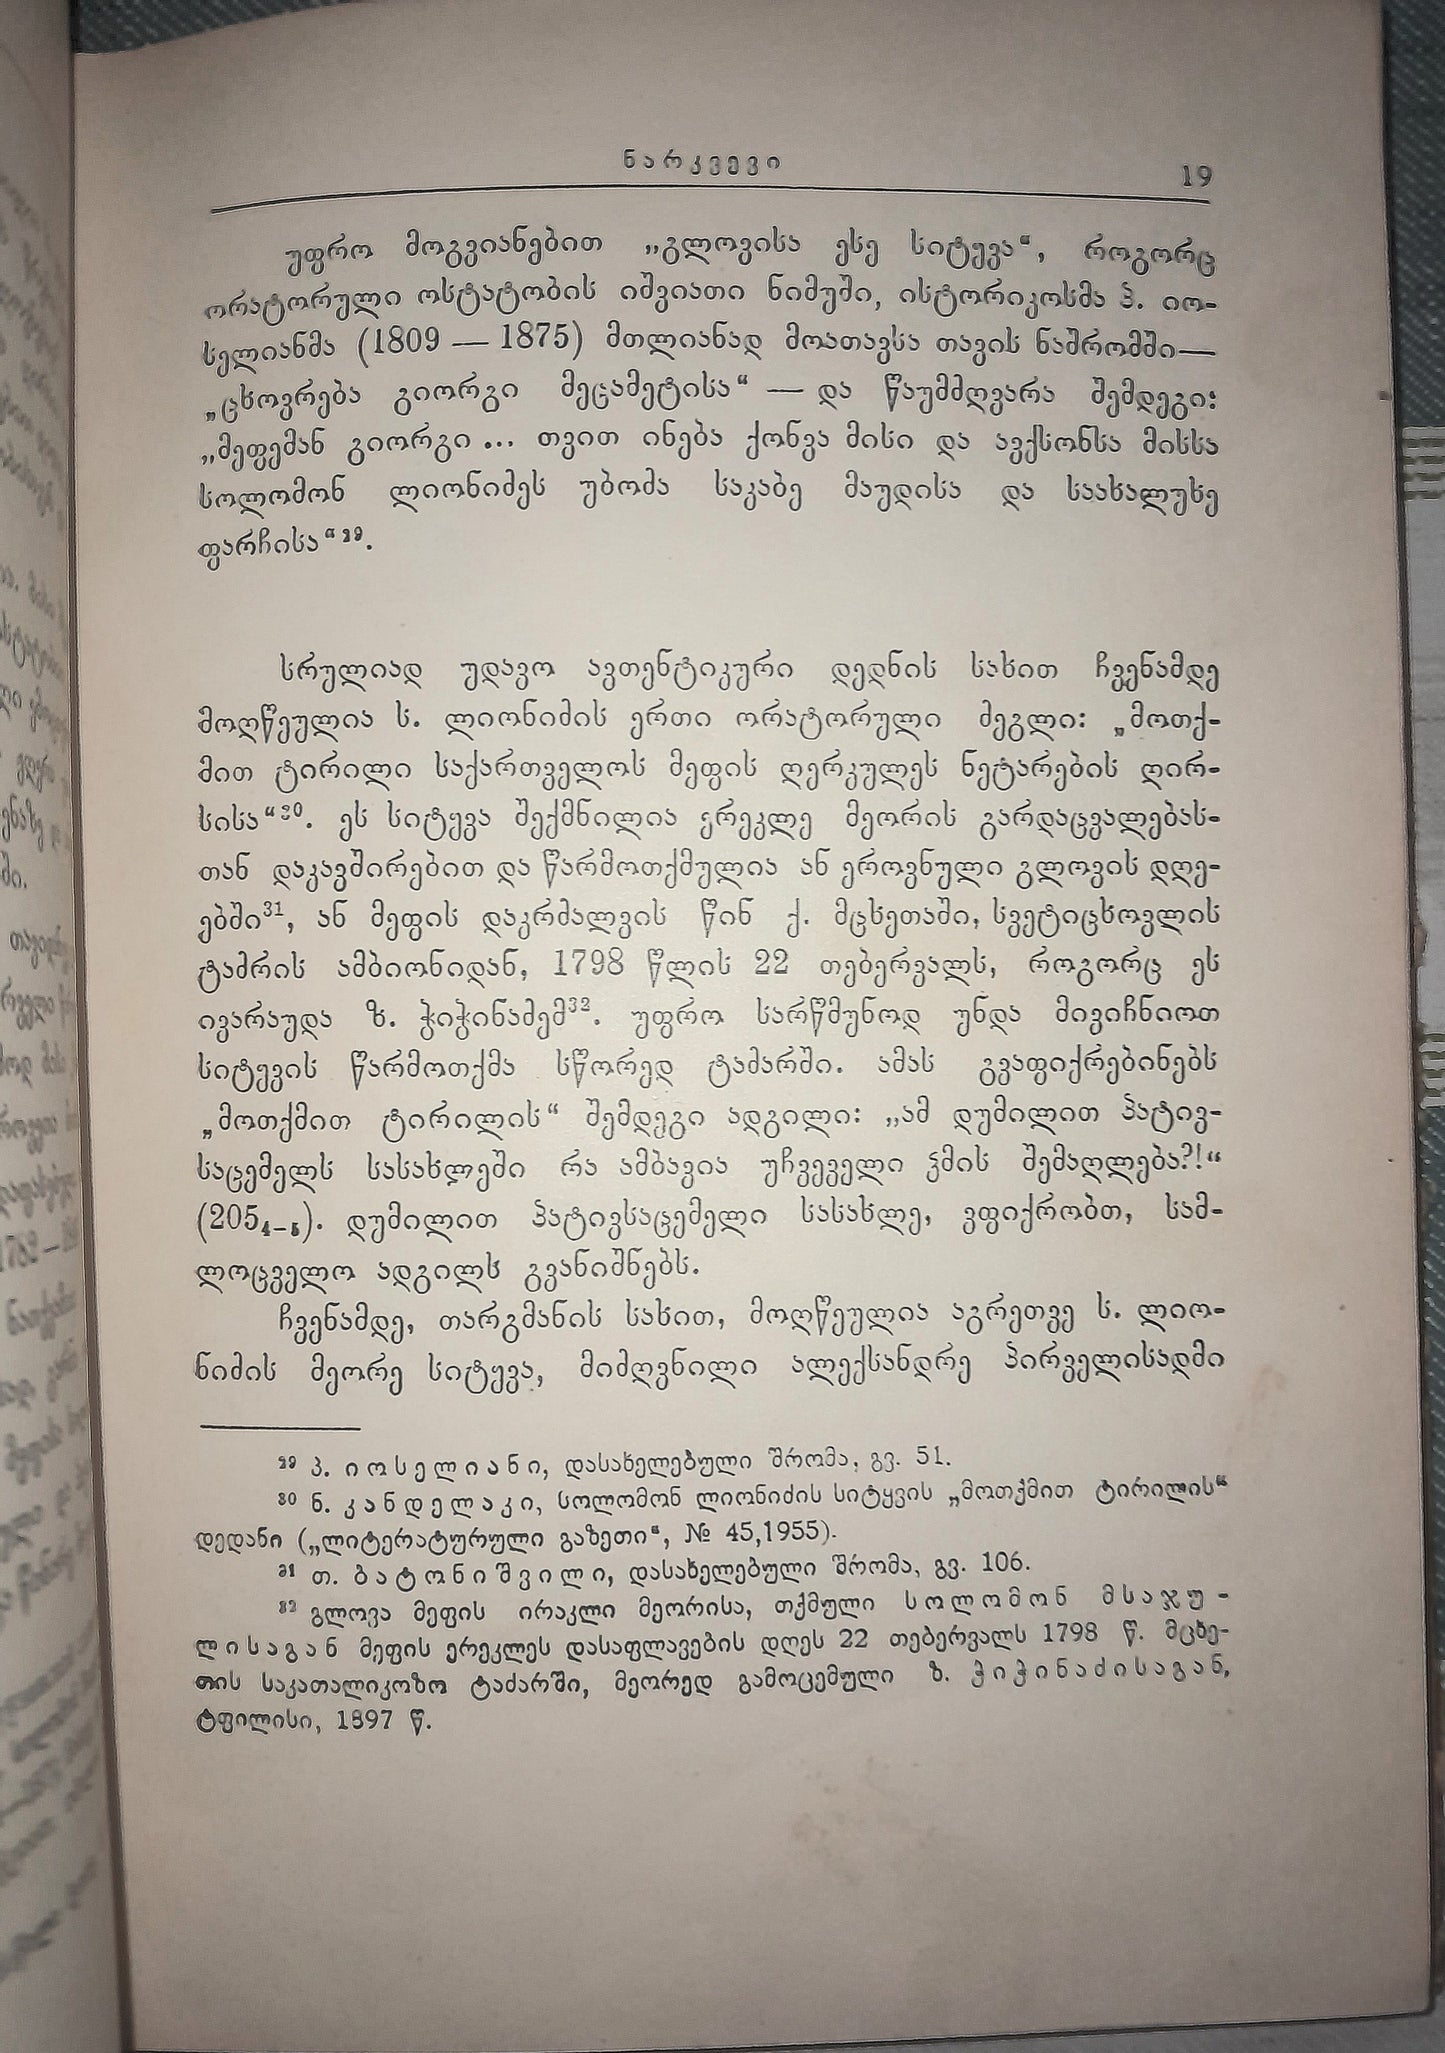 ნარკვევი
19
უფრო მოგვიანებით „გლოვისა ესე სიტყვა“, როგორც
ორატორული ოსტატობის იშვიათი ნიმუში, ისტორიკოსმა პ. იო-
სელიანმა (1809 — 1875) მთლიანად მოათავსა თავის ნაშრომში—
„ცხოვრება გიორგი მეცამეტისა“ — და წაუმძღვარა შემდეგი:
„მეფემან გიორგი ... თვით ინება ქონვა მისი და ავქსონსა მისსა
სოლომონ ლიონიძეს უბოძა საკაბე მაუდისა და საახალუხე
ფარჩისა“²⁹.
სრულიად უდავო ავთენტიკური დედნის სახით ჩვენამდე
მოღწეულია ს. ლიონიძის ერთი ორატორული ძეგლი: „მოთქ-
მით ტირილი საქართველოს მეფის ღერკულეს ნეტარების ღირ-
სისა“³⁰. ეს სიტყვა შექმნილია ერეკლე მეორის გარდაცვალებას-
თან დაკავშირებით და წარმოთქმულია ან ეროვნული გლოვის დღე-
ებში³¹, ან მეფის დაკრძალვის წინ ქ. მცხეთაში, სვეტიცხოვლის
ტაძრის ამბიონიდან, 1798 წლის 22 თებერვალს, როგორც ეს
ივარაუდა ზ. ჭიჭინაძემ³². უფრო სარწმუნოდ უნდა მივიჩნიოთ
სიტყვის წარმოთქმა სწორედ ტაძარში. ამას გვაფიქრებინებს
„მოთქმით ტირილის“ შემდეგი ადგილი: „ამ დუმილით პატივ-
საცემელს სასახლეში რა ამბავია უჩვეველი ჴმის შემაღლება?!“
(205₄₋₅). დუმილით პატივსაცემელი სასახლე, ვფიქრობთ, სამ-
ლოცველო ადგილს გვანიშნებს.
ჩვენამდე, თარგმანის სახით, მოღწეულია აგრეთვე ს. ლიო-
ნიძის მეორე სიტყვა, მიძღვნილი ალექსანდრე პირველისადმი
²⁹ პ. იოსელიანი, დასახელებული შრომა, გვ. 51.
³⁰ ნ. კანდელაკი, სოლომონ ლიონიძის სიტყვის „მოთქმით ტირილის“
დედანი („ლიტერატურული გაზეთი“, № 45,1955).
³¹ თ. ბატონიშვილი, დასახელებული შრომა, გვ. 106.
³² გლოვა მეფის ირაკლი მეორისა, თქმული სოლომონ მსაჯუ-
ლისაგან მეფის ერეკლეს დასაფლავების დღეს 22 თებერვალს 1798 წ. მცხე-
თის საკათალიკოზო ტაძარში, მეორედ გამოცემული ზ. ჭიჭინაძისაგან,
ტფილისი, 1897 წ.